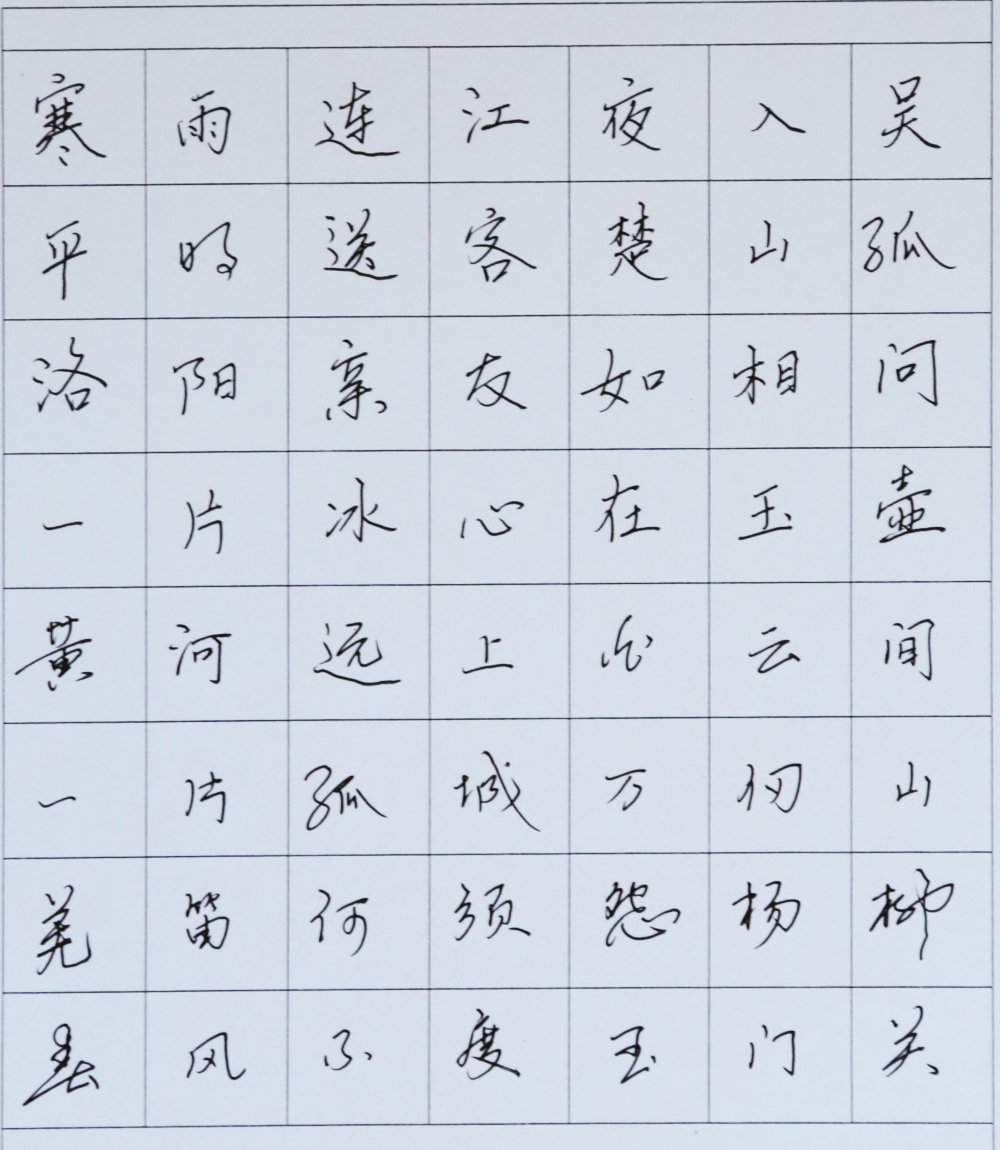 寒雨连江夜入吴
平明送客楚山孤
洛阳亲友如相问
一片冰心在玉壶
黄河远上白云间
一片孤城万仞山
羌笛何须怨杨柳
春风不度玉门关